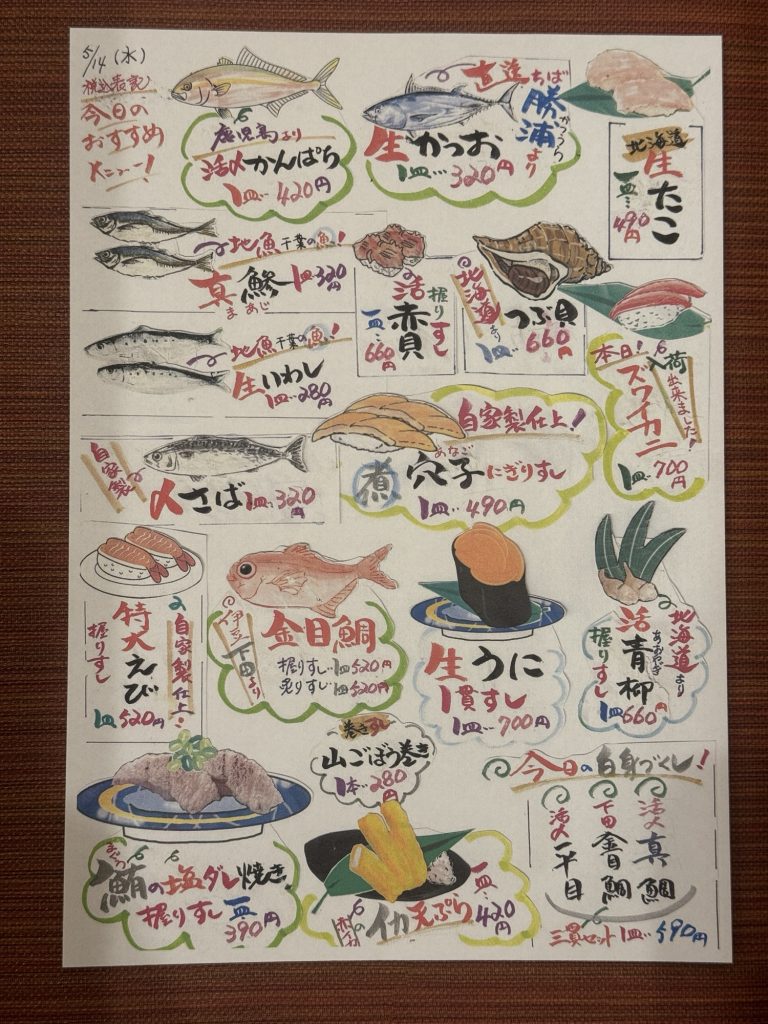 5/14(水)
税込表記
今日の
おすすめ
メニュー!
鹿児島より
活〆かんぱち
1皿…420円
直送ちば
勝浦より
かつうら
生かつお
1皿…320円
北海道
生たこ
一皿…490円
地魚千葉の魚!
真鯵
まあじ
1皿320円
活赤貝
握りすし
一皿…660円
北海道より
つぶ貝
1皿…660円
地魚千葉の魚!
生いわし
1皿…280円
本日!
入荷出来ました!
ズワイカニ
1皿…700円
自家製
〆さば
1皿…320円
自家製仕上!
あなご
煮穴子にぎりすし
1皿…490円
自家製仕上
特大えび
握りすし
1皿520円
伊豆下田より
金目鯛
握りすし…1皿520円
炙りすし…1皿520円
生うに
1貫すし
1皿…700円
北海道より
あおやぎ
活青柳
握りすし
1皿660円
巻きすし
山ごぼう巻き
1本…280円
まぐろ
鮪の塩ダレ焼き
握りすし一皿…390円
イカ天ぷら
一皿…420円
今日の白身づくし!
活〆真鯛
下田金目鯛
活〆平目
三貫セット1皿…590円